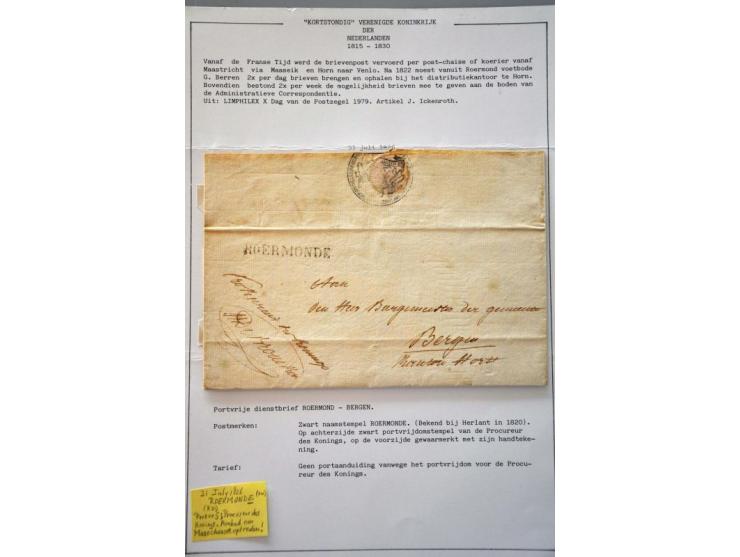 "KORTSTONDIG" VERENIGDE KONINKRIJK
DER
NEDERLANDEN
1815 - 1830
Vanaf de Franse Tijd werd de brievenpost vervoerd per post-chaise of koerier vanaf
Maastricht via Maaseik en Horn naar Venlo. Na 1822 moest vanuit Roermond voetbode
G. Berren 2x per dag brieven brengen en ophalen bij het distributiekantoor te Horn.
Bovendien bestond 2x per week de mogelijkheid brieven mee te geven aan de boden van
de Administratieve Correspondentie.
Uit: LIMPHILEX X Dag van de Postzegel 1979. Artikel J. Ickenroth.
31 juli
ROERMONDE
Aan
den Heer Burgemeester der gemeente
Bergen
Kanton Horst
Portvrije dienstbrief ROERMOND - BERGEN.
Postmerken: Zwart naamstempel ROERMONDE. (Bekend bij Herlant in 1820).
Op achterzijde zwart portvrijdomstempel van de Procureur
des Konings, op de voorzijde gewaarmerkt met zijn handteke-
ning.
Tarief: Geen portaanduiding vanwege het portvrijdom voor de Procu-
reur des Konings.
31 July
ROERMONDE
Procureur des
Konings.